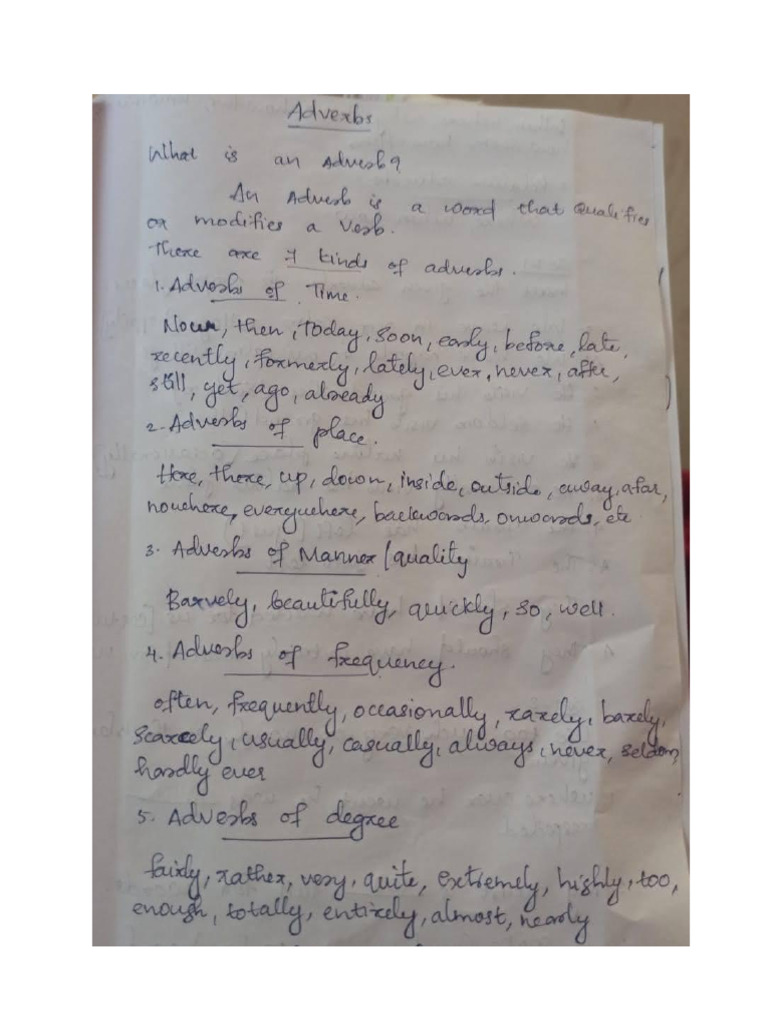 Adverbs
What is an Adverb?
An Adverb is a word that Qualifies
or modifies a Verb.
There are 7 kinds of adverbs.
1. Adverbs of Time.
Now, then, today, soon, early, before, late,
recently, formerly, lately, ever, never, after,
still, yet, ago, already
2. Adverbs of place.
Here, there, up, down, inside, outside, away, afar,
nowhere, everywhere, backwards, onwards, etc
3. Adverbs of Manner / quality
Barvely, beautifully, quickly, so, well.
4. Adverbs of frequency.
often, frequently, occasionally, rarely, barely,
Scarcely, usually, casually, always, never, seldom,
hardly ever
5. Adverbs of degree
fairly, rather, very, quite, extremely, highly, too,
enough, totally, entirely, almost, nearly